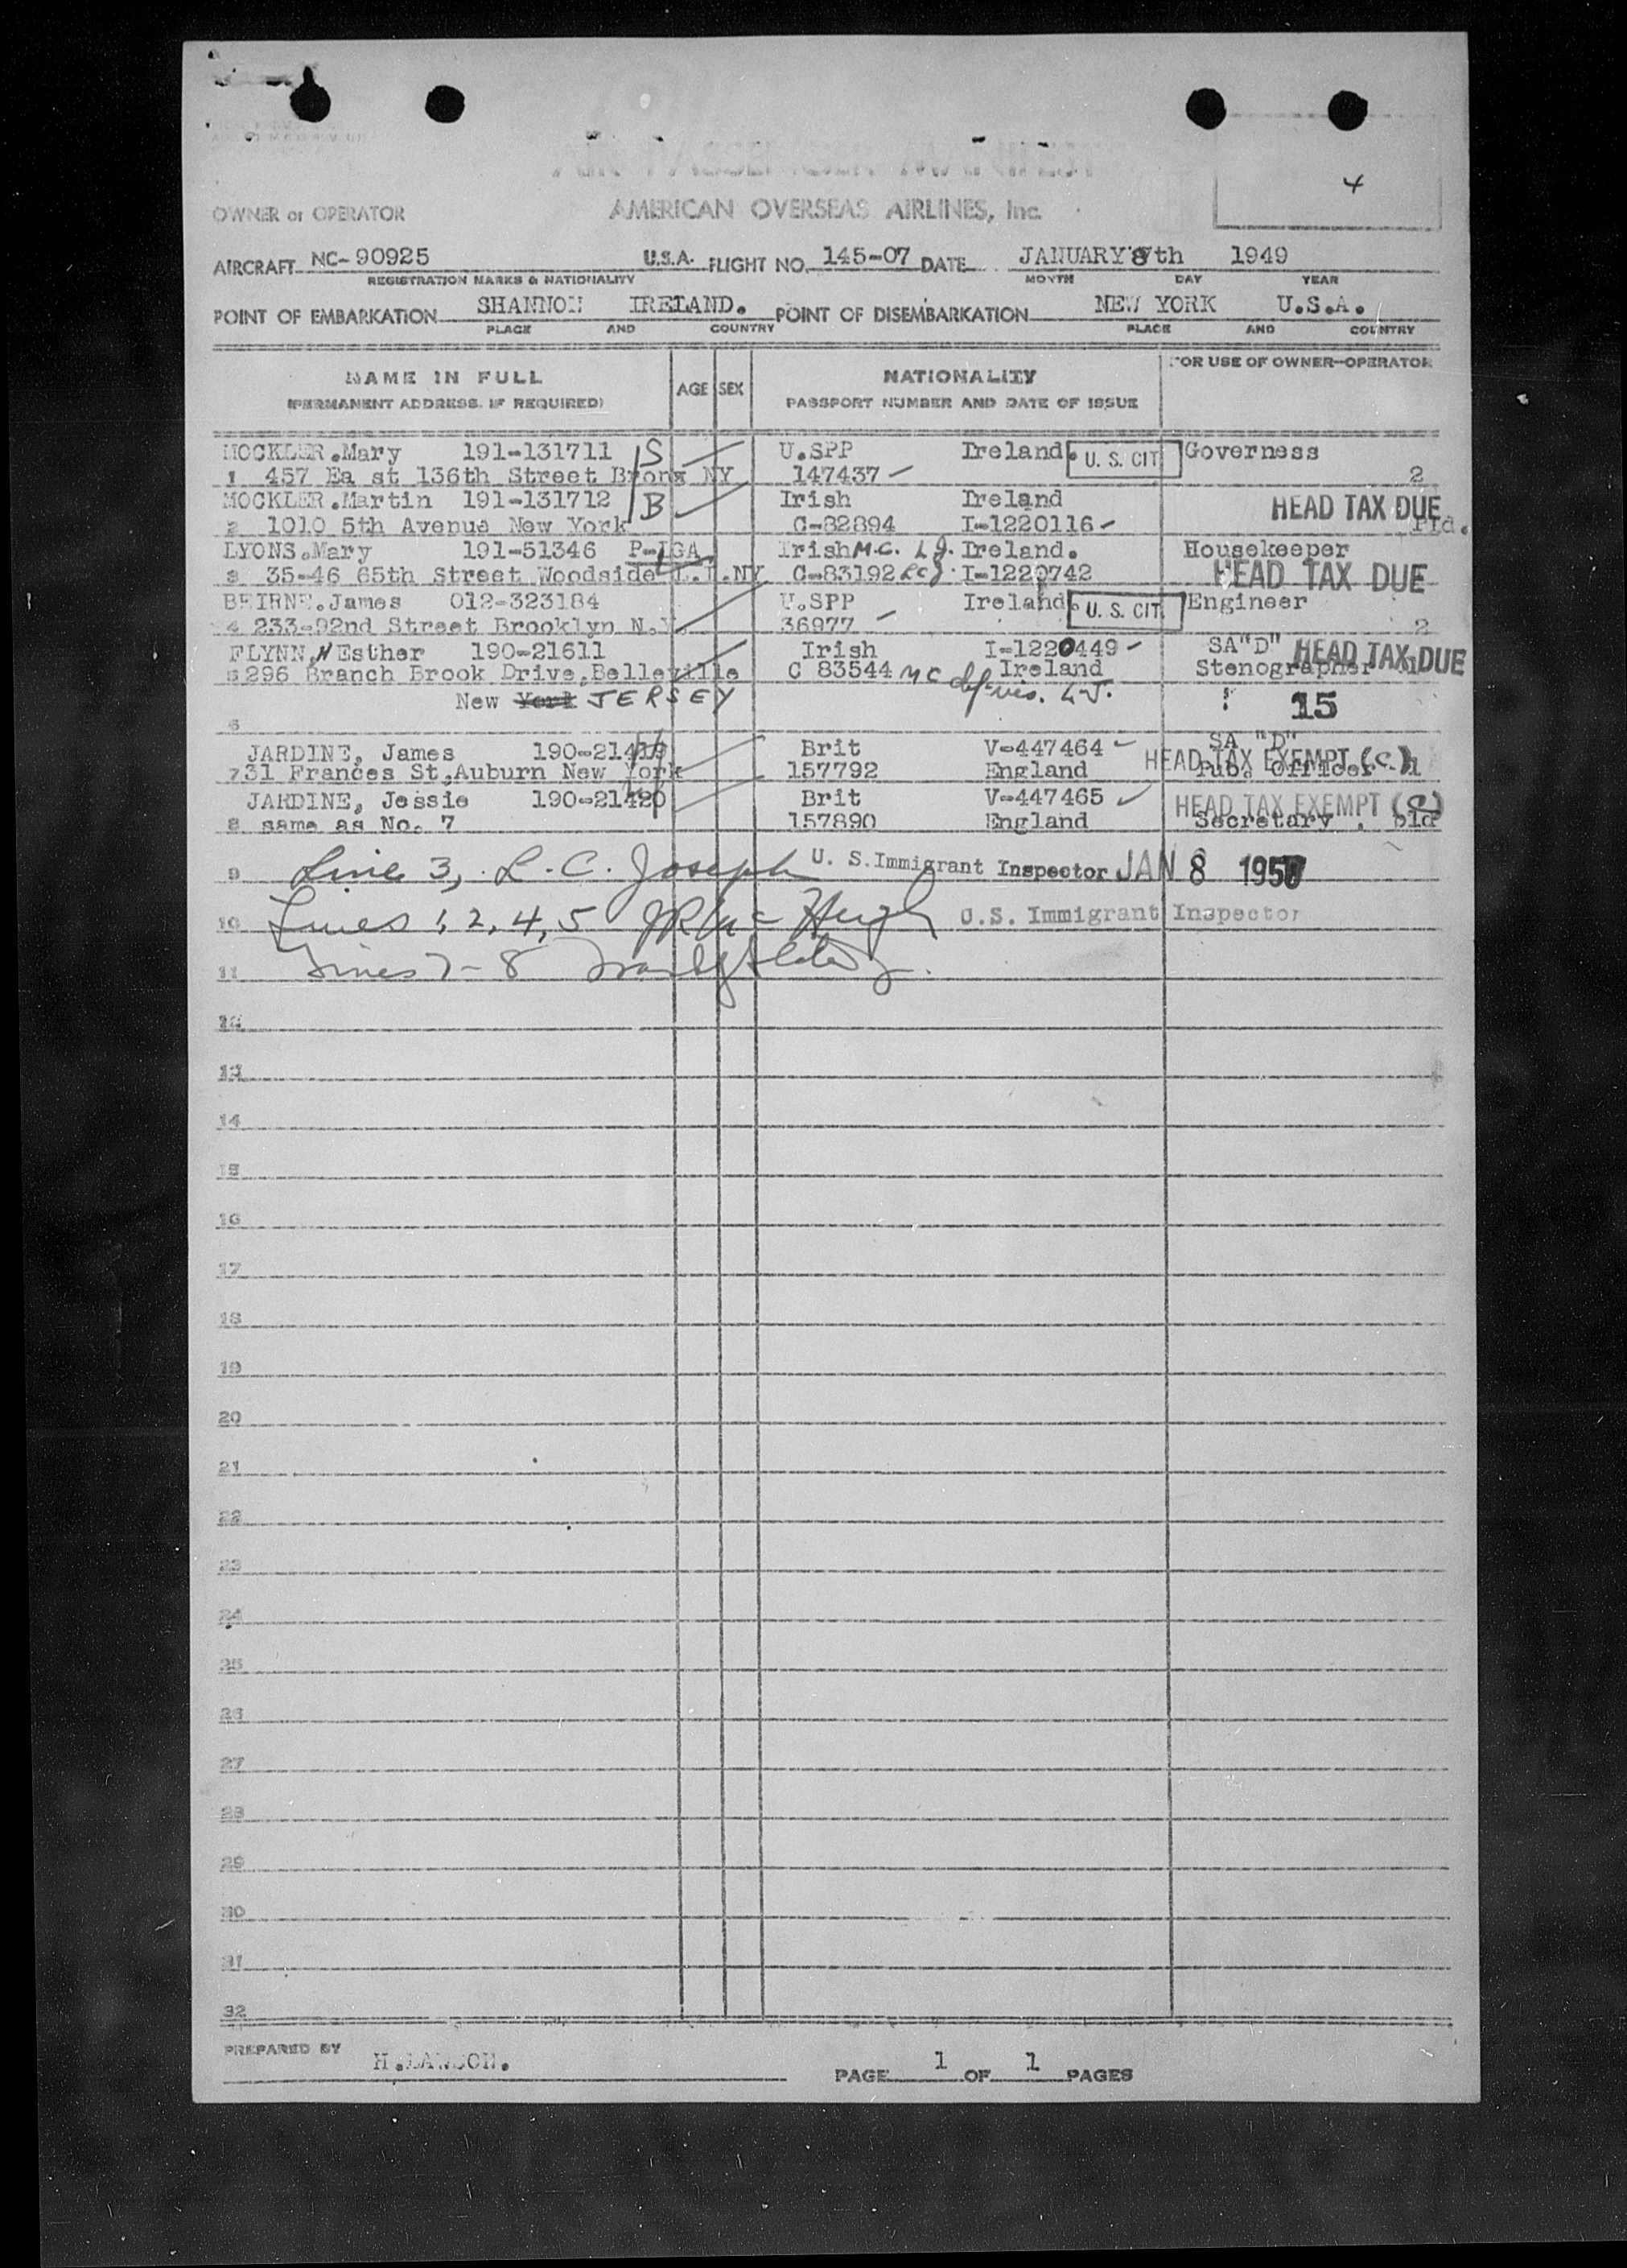 4
OWNER or OPERATOR AMERICAN OVERSEAS AIRLINES, Inc.
AIRCRAFT NC-90925 U.S.A. FLIGHT NO. 145-07 DATE JANUARY 8th 1949
REGISTRATION MARKS & NATIONALITY MONTH DAY YEAR
POINT OF EMBARKATION SHANNON IRELAND. POINT OF DISEMBARKATION NEW YORK U.S.A.
PLACE AND COUNTRY PLACE AND COUNTRY
NAME IN FULL AGE SEX NATIONALITY FOR USE OF OWNER-OPERATOR
(PERMANENT ADDRESS, IF REQUIRED) PASSPORT NUMBER AND DATE OF ISSUE
MOCKLER.Mary 191-131711 S U.SPP Ireland. U. S. CIT Governess
1 457 Ea st 136th Street Bronx NY 147437 2
MOCKLER.Martin 191-131712 B Irish Ireland HEAD TAX DUE
2 1010 5th Avenue New York C-82894 I-1220116
LYONS.Mary 191-51346 Irish M.C. L.J. Ireland. Housekeeper
3 35-46 65th Street Woodside L.I.NY C-83192 I-1220742 HEAD TAX DUE
BEIRNE.James 012-323184 U.SPP Ireland. U. S. CIT. Engineer
4 233-92nd Street Brooklyn N.Y. 36977 2
FLYNN, N Esther 190-21611 Irish I-1220449 SA"D" HEAD TAX DUE
5 296 Branch Brook Drive,Belleville C 83544 MC Ireland Stenographer 1
New York JERSEY L.J. 15
6
JARDINE, James 190-21419 Brit V-447464 SA "D" HEAD TAX EXEMPT (C)
7 31 Frances St,Auburn New York 157792 England Pub. Officer 1
JARDINE, Jessie 190-21420 Brit V-447465 HEAD TAX EXEMPT (C)
8 same as No. 7 157890 England Secretary
9 Line 3, L.C. Joseph U. S. Immigrant Inspector JAN 8 1950
10 Lines 1, 2, 4, 5 JR McHugh U.S. Immigrant Inspector
11 Lines 7-8
12
13
14
15
16
17
18
19
20
21
22
23
24
25
26
27
28
29
30
31
32
PREPARED BY H.LAWSON. PAGE 1 OF 1 PAGES